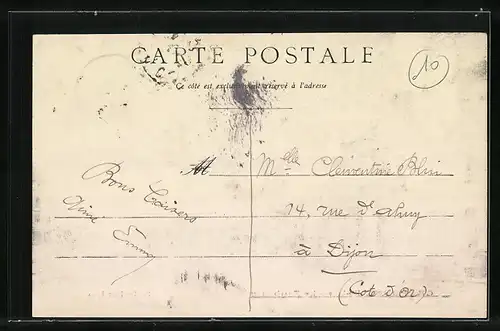 CARTE POSTALE
Ce côté est exclusivement réservé à l'adresse
10
Bons Baisers
Aimé
Mlle Clémentine Blin
14, rue d'Ahuy
à Dijon
(Cote d'Or)